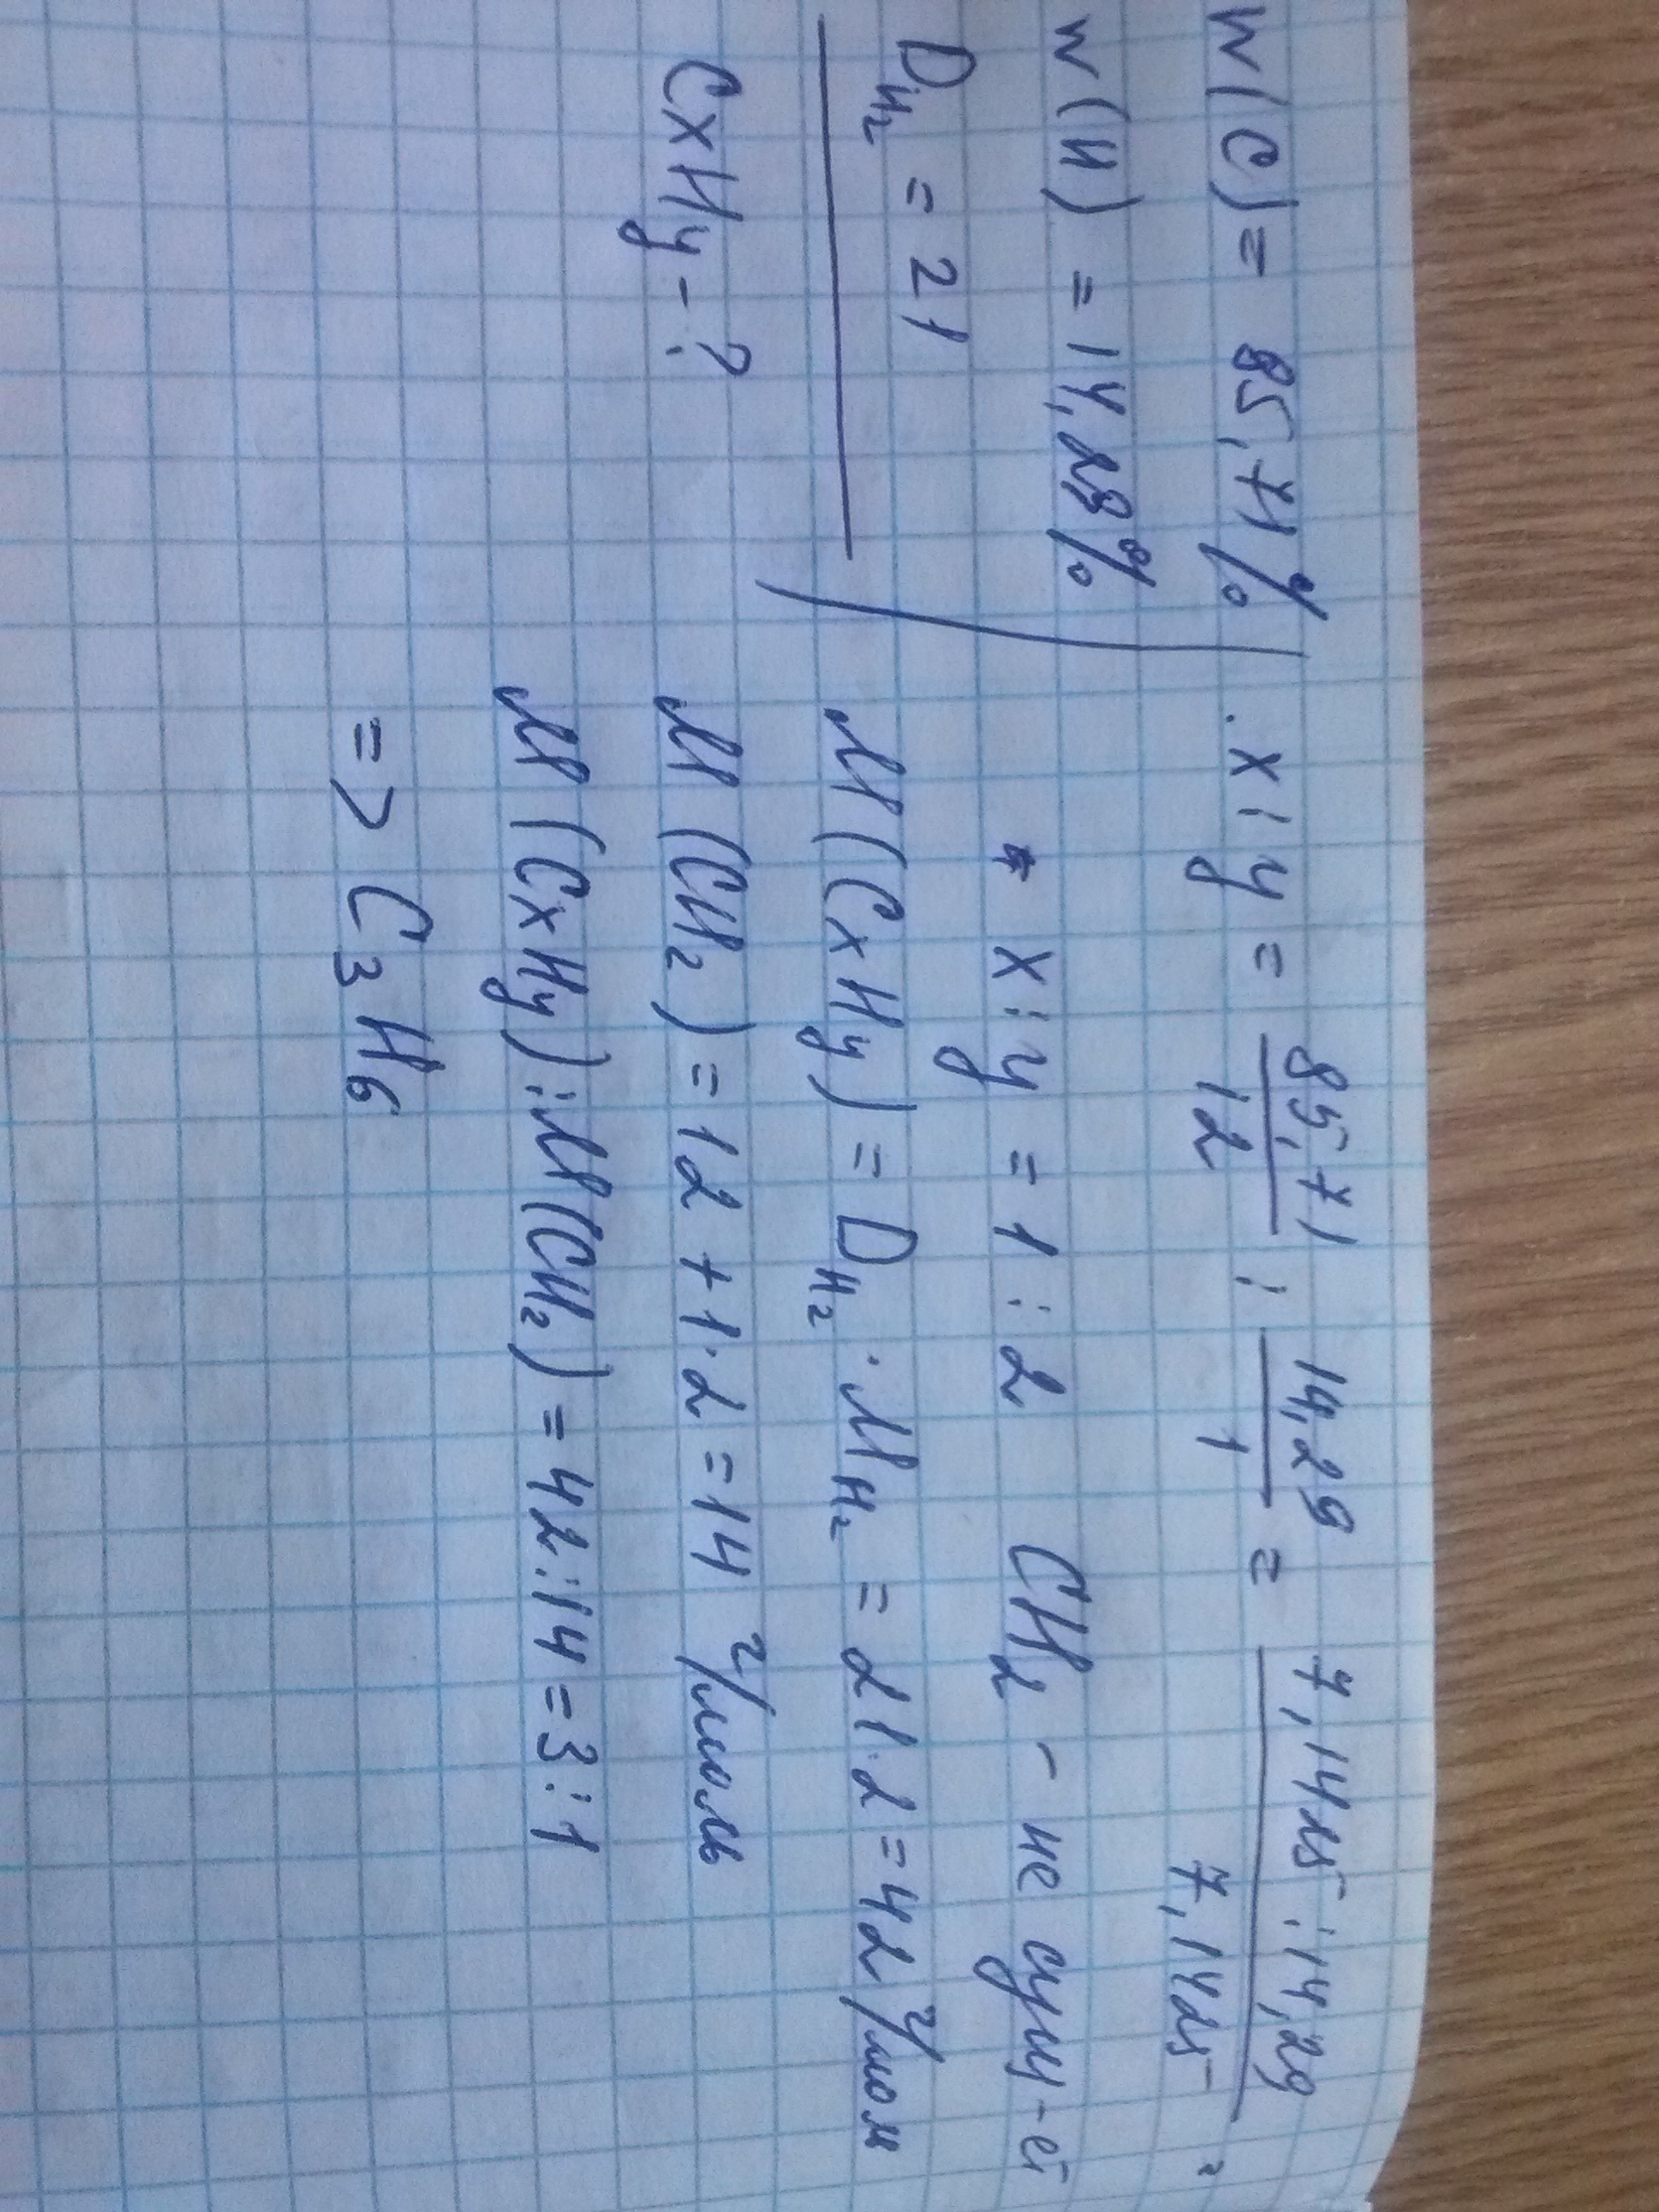 W(C) = 85,71%
W(H) = 14,29%
D H₂ = 21
CxHy - ?
x : y = 85,71/12 : 14,29/1 = 7,1425 : 14,29/7,1425 =
* x : y = 1 : 2 CH₂ - не сущ-ет
M(CxHy) = D H₂ · M H₂ = 21·2 = 42 г/мол
M(CH₂) = 12 + 1·2 = 14 г/моль
M(CxHy) : M(CH₂) = 42 : 14 = 3 : 1
=> C₃H₆